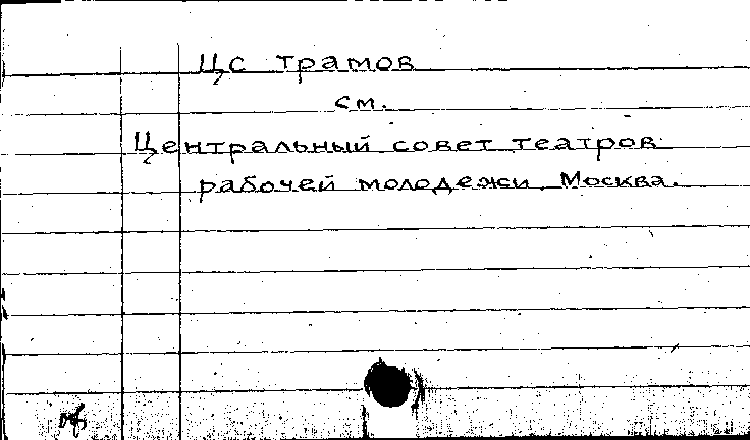 Цс трамов
см.
Центральный совет театров
рабочей молодежи, Москва.